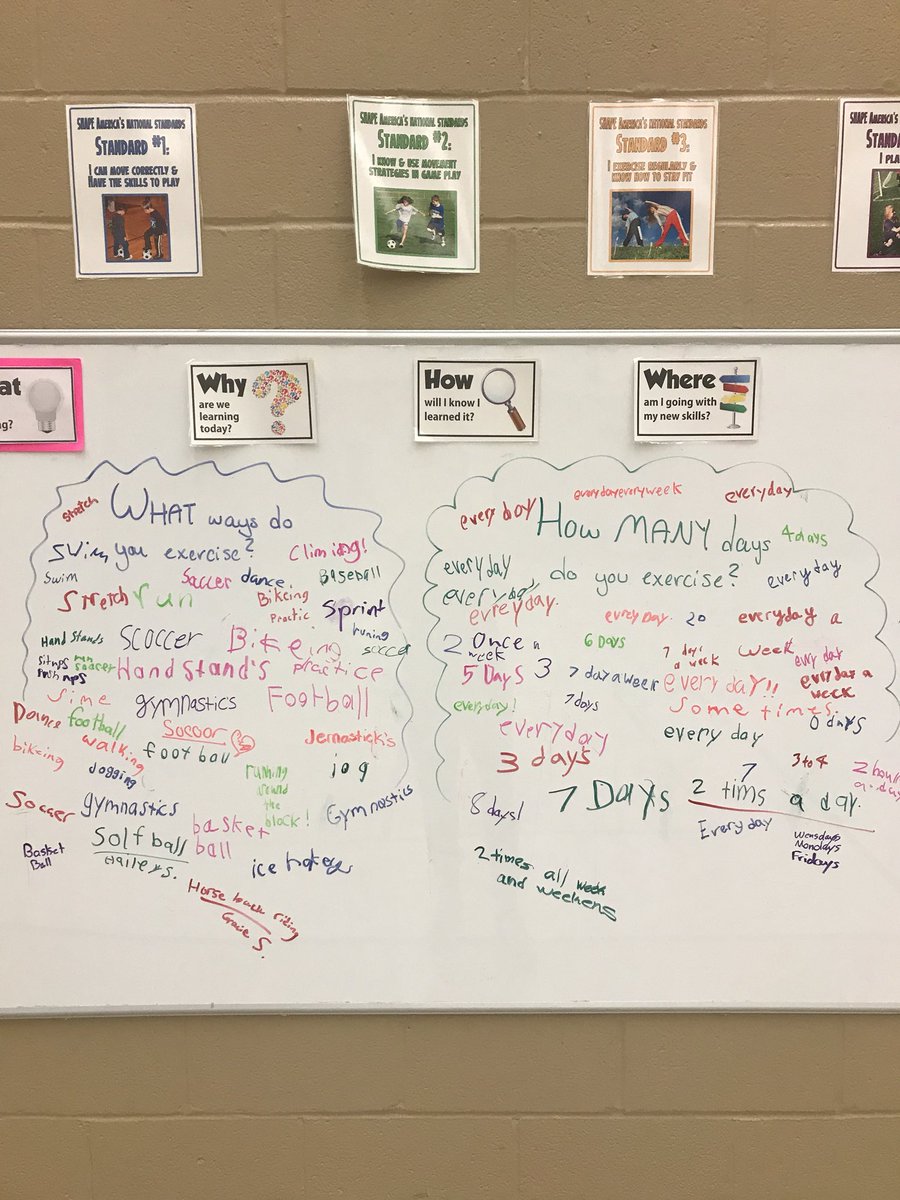 SHAPE AMERICA'S NATIONAL STANDARDS
STANDARD #1:
I CAN MOVE CORRECTLY &
HAVE THE SKILLS TO PLAY
SHAPE AMERICA'S NATIONAL STANDARDS
STANDARD #2:
I KNOW & USE MOVEMENT
STRATEGIES IN GAME PLAY
SHAPE AMERICA'S NATIONAL STANDARDS
STANDARD #3:
I EXERCISE REGULARLY &
KNOW HOW TO STAY FIT
SHAPE AMERICA
STANDA
I PLA
at
g?
Why
are we
learning
today?
How
will I know I
learned it?
Where
am I going with
my new skills?
stretch
WHAT ways do
you exercise?
Swim
Climiing!
Swim
Soccer
dance.
BASEBALL
Stretch
run
Bikcing
Practic
Sprint
runing
Hand Stands
Scoccer
Bikeing
practice
socced
situps
pushups
run
soccer
Hand Stand's
Sime
gymnastics
Football
Dance
football
Socoor
Jernastick's
bikcing
walking
foot ball
jog
Jogging
running
around
the
block!
Soccer
gymnastics
Gymnastics
basket
ball
Solfball
Haileys.
Basket
Ball
ice hokey
Horse back riding
Gracie S.
every day
everydayeveryweek
everyday
How MANY days
do you exercise?
4 days
everyday
everyday
everyday
evreyday.
every Day.
20
everyday a
week
2
Once a
week
6 DAYS
7 days
a week
evry day
5 Days
3
7 day a week
everyday!!
everyday a
week
everyday!
7 days
Some times.
0 days
everyday
every day
3 days
7
3 to 4
2 hours
a day
8 days!
7 Days
2 tims a day.
Everyday
Wensdays
Mondays
Fridays
2 times all week
and weekens